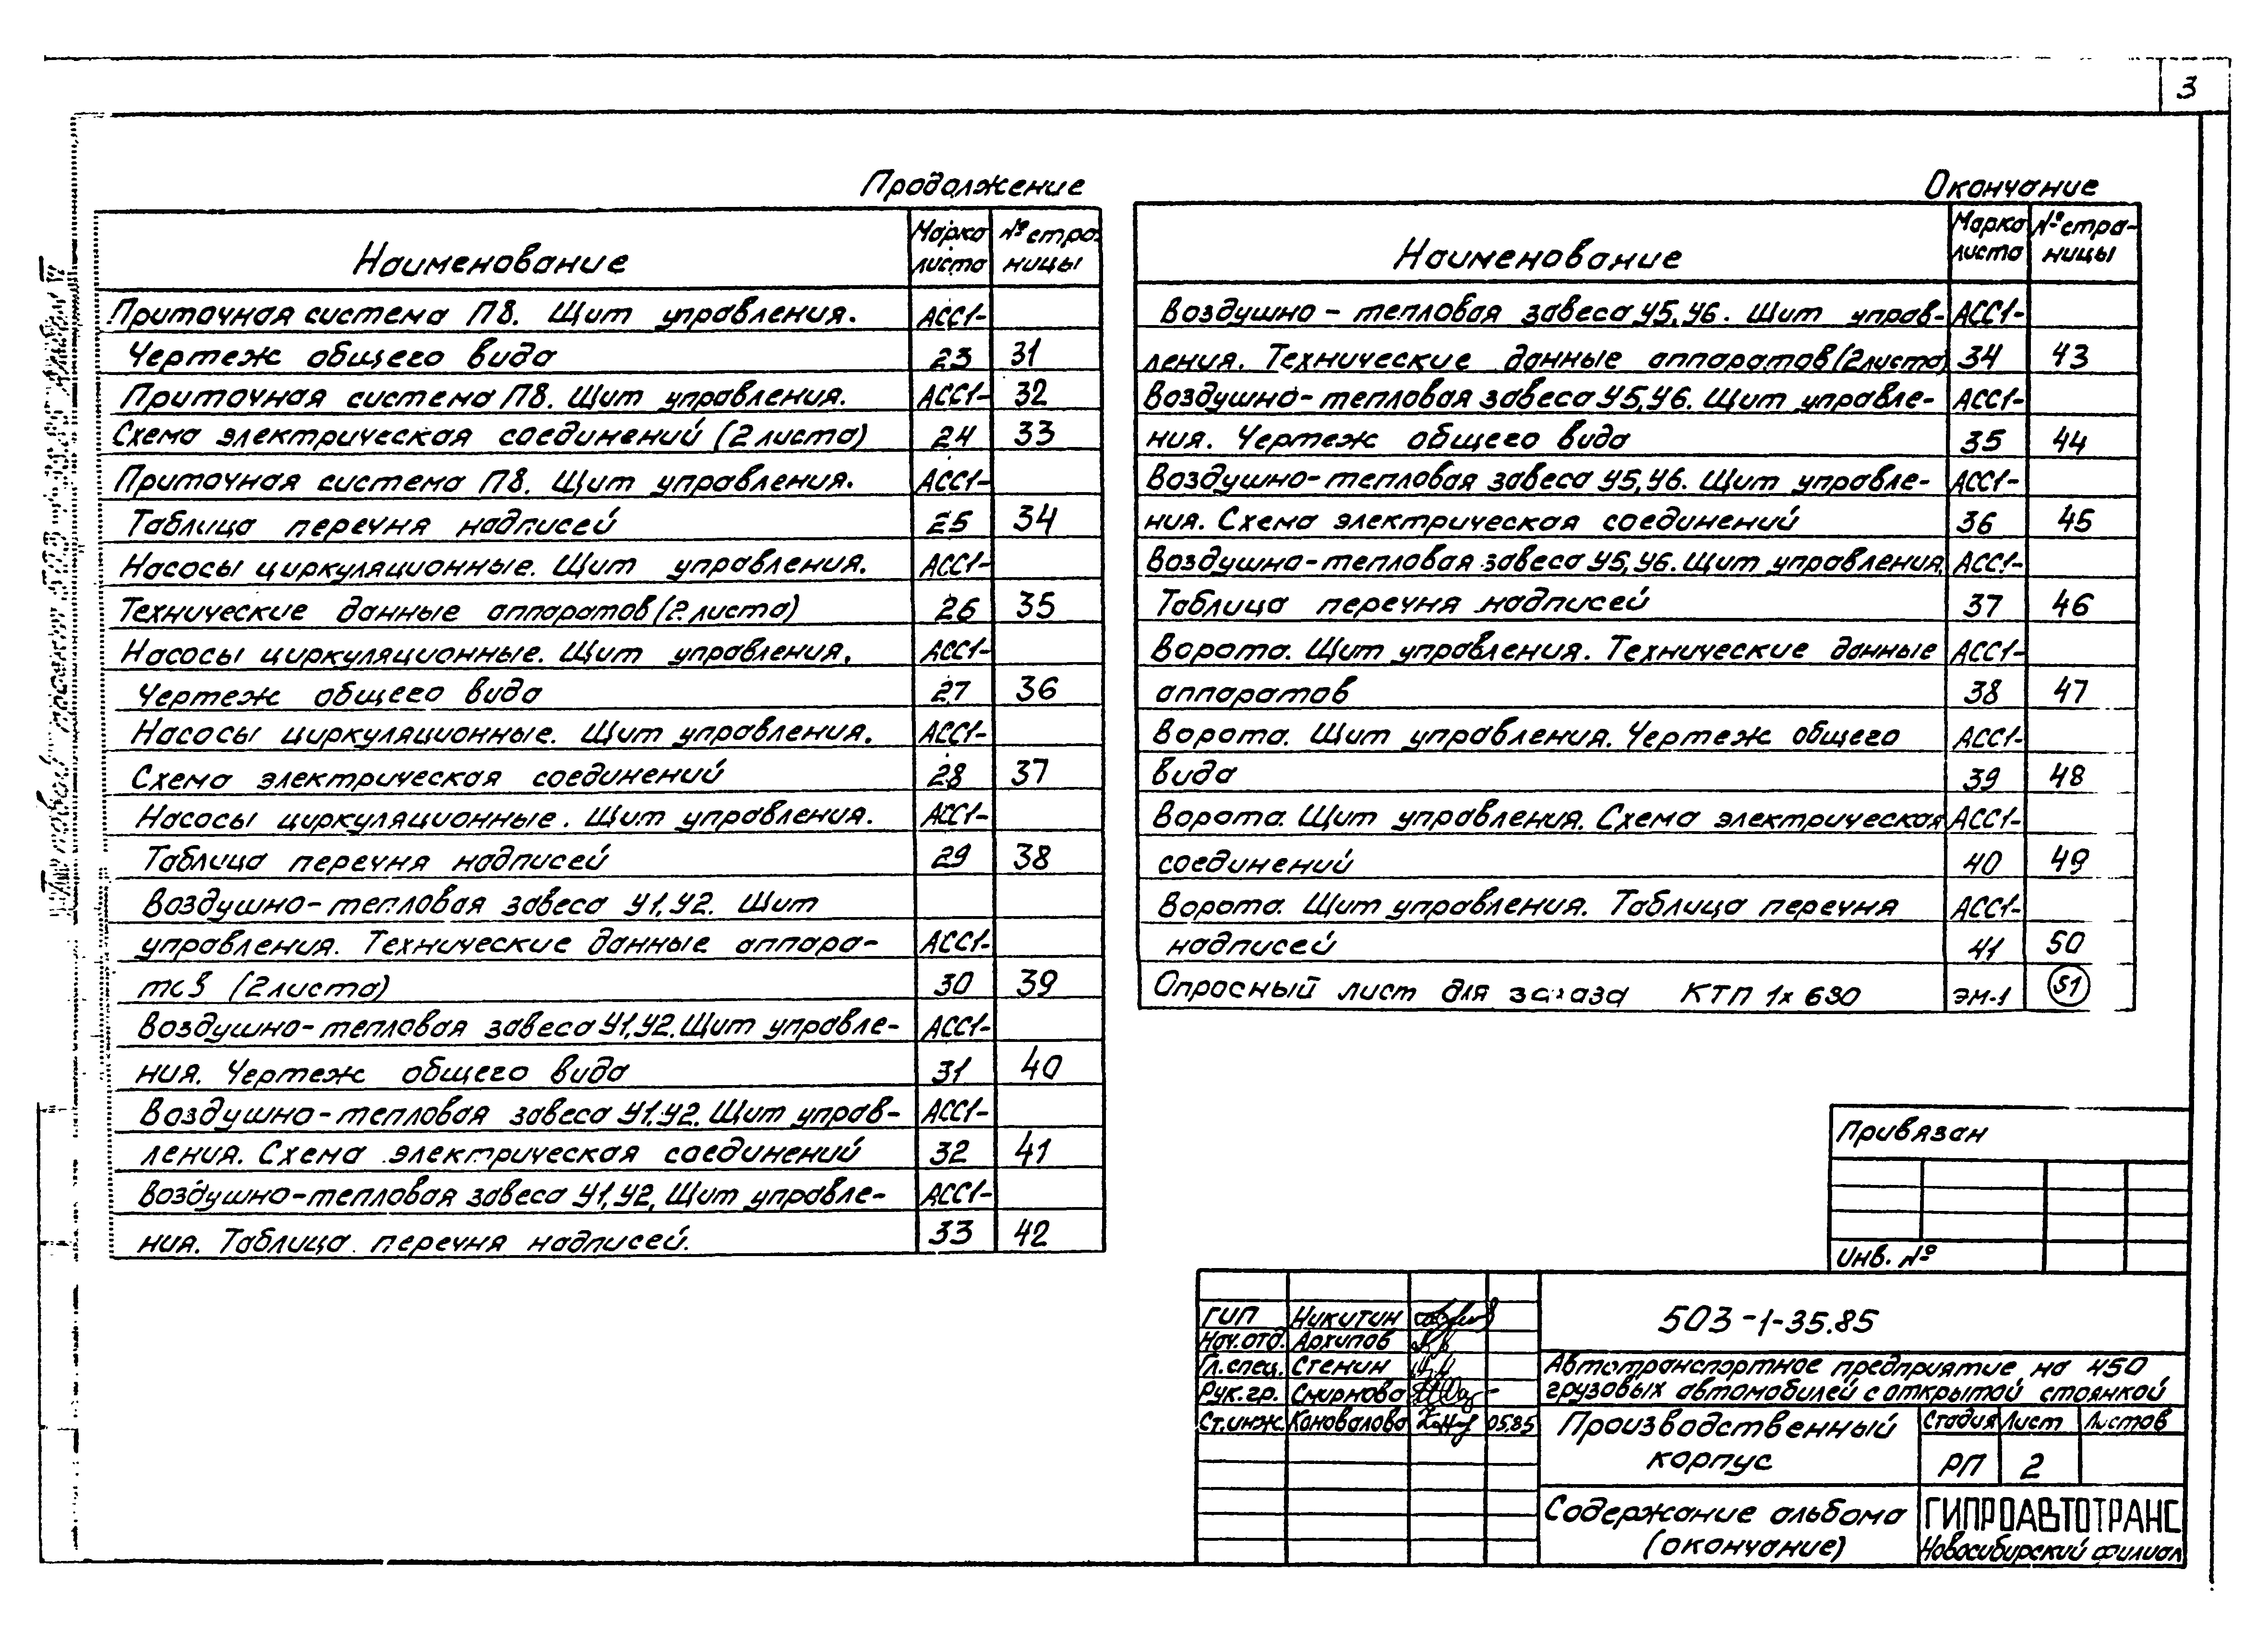 3
Продолжение
Наименование Марка листа № страницы
Приточная система П8. Щит управления. АСС1-
Чертеж общего вида 23 31
Приточная система П8. Щит управления. АСС1- 32
Схема электрическая соединений (2 листа) 24 33
Приточная система П8. Щит управления. АСС1-
Таблица перечня надписей 25 34
Насосы циркуляционные. Щит управления. АСС1-
Технические данные аппаратов (2 листа) 26 35
Насосы циркуляционные. Щит управления. АСС1-
Чертеж общего вида 27 36
Насосы циркуляционные. Щит управления. АСС1-
Схема электрическая соединений 28 37
Насосы циркуляционные. Щит управления. АСС1-
Таблица перечня надписей 29 38
Воздушно-тепловая завеса У1,У2. Щит
управления. Технические данные аппара- АСС1-
тов (2 листа) 30 39
Воздушно-тепловая завеса У1,У2. Щит управле- АСС1-
ния. Чертеж общего вида 31 40
Воздушно-тепловая завеса У1,У2. Щит управ- АСС1-
ления. Схема электрическая соединений 32 41
Воздушно-тепловая завеса У1,У2, Щит управле- АСС1-
ния. Таблица перечня надписей. 33 42
Окончание
Наименование Марка листа № страницы
Воздушно-тепловая завеса У5,У6. Щит управ- АСС1-
ления. Технические данные аппаратов (2 листа) 34 43
Воздушно-тепловая завеса У5,У6. Щит управле- АСС1-
ния. Чертеж общего вида 35 44
Воздушно-тепловая завеса У5,У6. Щит управле- АСС1-
ния. Схема электрическая соединений 36 45
Воздушно-тепловая завеса У5,У6. Щит управления. АСС1-
Таблица перечня надписей 37 46
Ворота. Щит управления. Технические данные АСС1-
аппаратов 38 47
Ворота. Щит управления. Чертеж общего АСС1-
вида 39 48
Ворота. Щит управления. Схема электрическая АСС1-
соединений 40 49
Ворота. Щит управления. Таблица перечня АСС1-
надписей 41 50
Опросный лист для заказа КТП 1х630 ЭМ-1 51
Привязан
Инв. №
ГИП Никитин
Нач.отд. Архипов
Гл.спец. Стенин
Рук.гр. Смирнова
Ст.инж. Коновалова 05.85
503-1-35.85
Автотранспортное предприятие на 450
грузовых автомобилей с открытой стоянкой
Производственный
корпус
Стадия Лист Листов
РП 2
Содержание альбома
(окончание)
ГИПРОАВТОТРАНС
Новосибирский филиал
Типовой проект 503-1-35.85